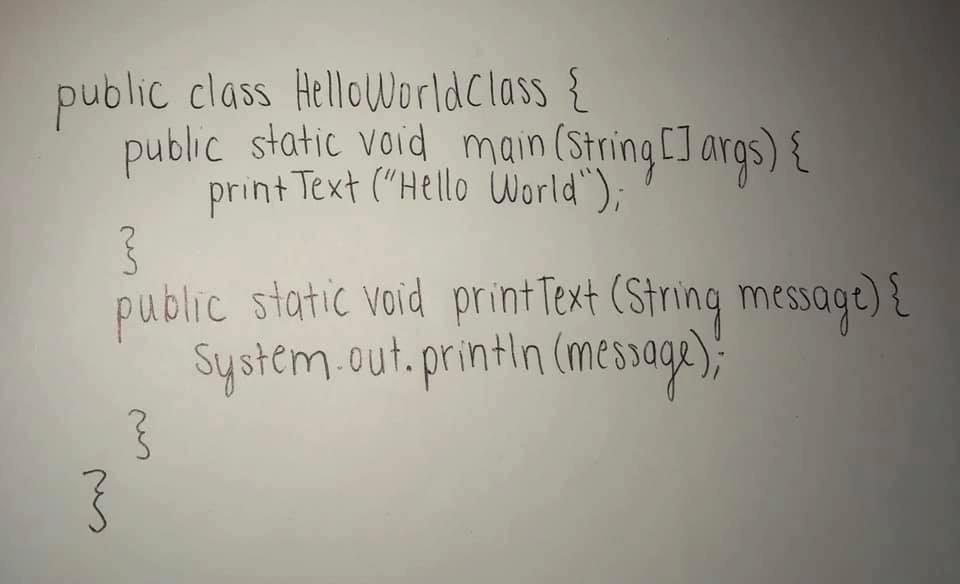 public class HelloWorldClass {
public static void main(String[] args) {
printText ("Hello World");
}
public static void printText (String message) {
System.out.println (message);
}
}